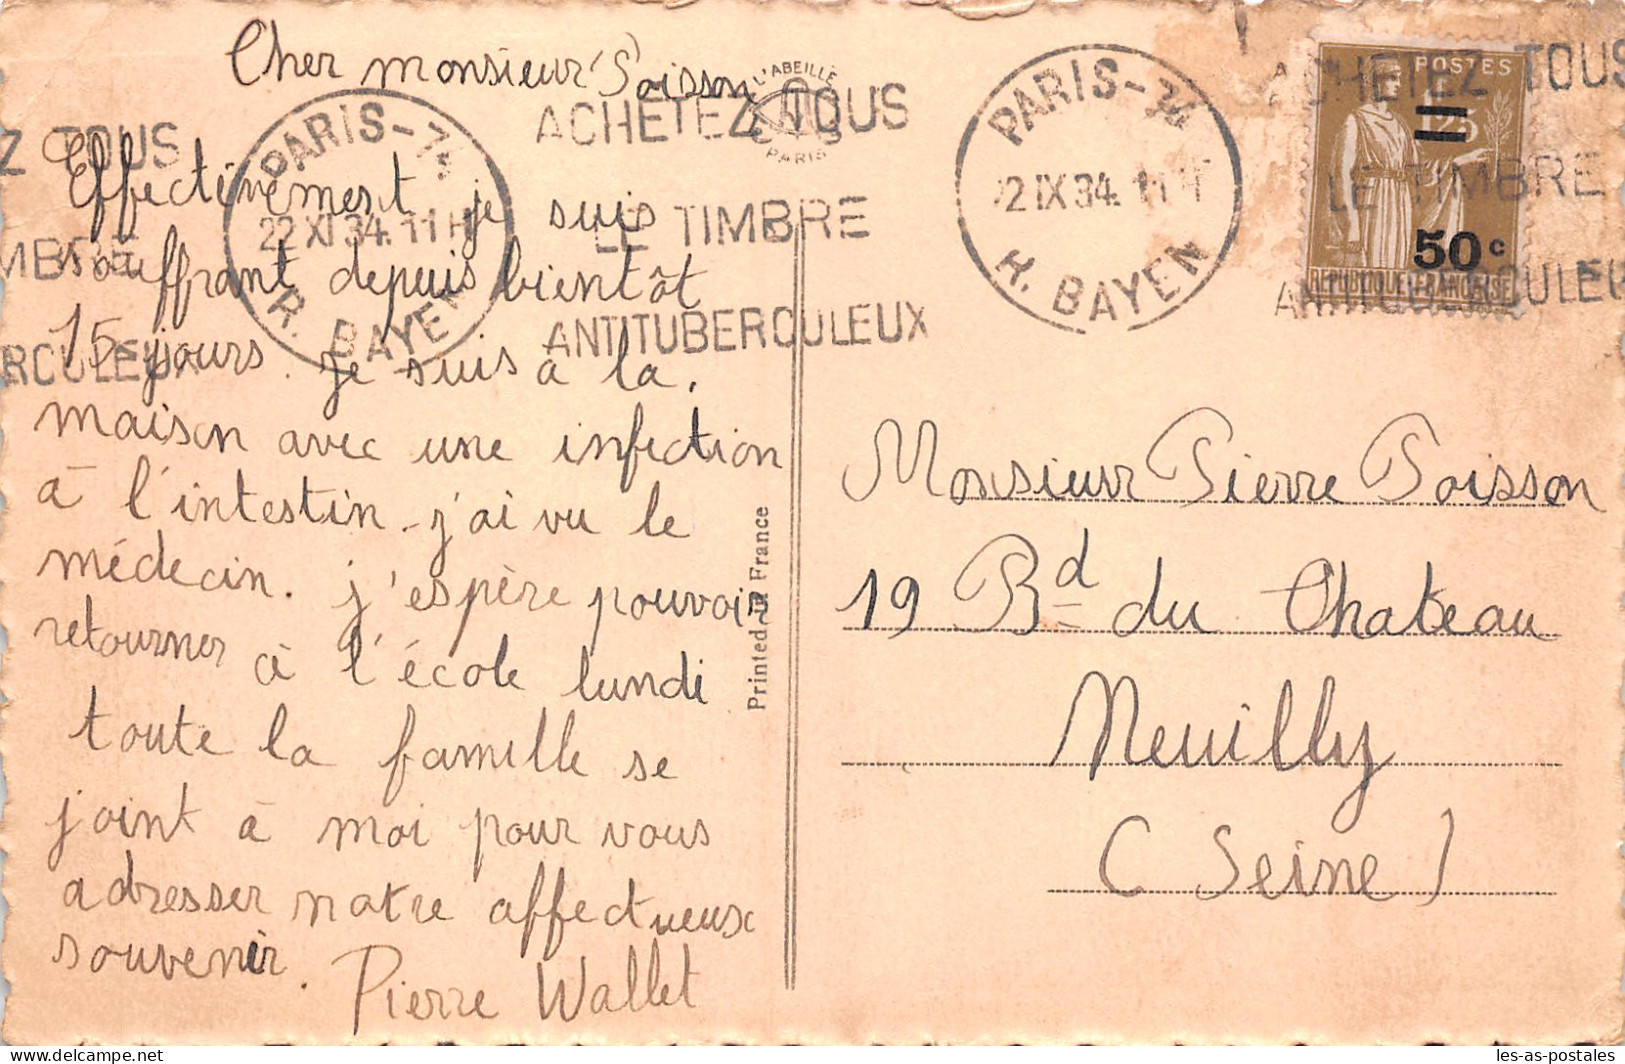 Cher monsieur Poisson
Effectivement je suis
souffrant depuis bientôt
15 jours. je suis à la
maison avec une infection
à l'intestin. j'ai vu le
médecin. j'espère pouvoir
retourner à l'école lundi
toute la famille se
joint à moi pour vous
adresser notre affectueux
souvenir.
Pierre Wallet
L'ABEILLE
PARIS
Printed in France
Z TOUS
MBRE
RCULEUX
PARIS
22 XI 34. 11 H
R. BAYEN
ACHETEZ TOUS
LE TIMBRE
ANTITUBERCULEUX
PARIS
2 IX 34. 11
R. BAYEN
ACHETEZ TOUS
LE TIMBRE
POSTES
50c
REPUBLIQUE FRANCAISE
Monsieur Pierre Poisson
19 Bd du Chateau
Neuilly
(Seine)
les-as-postales
delcampe.net